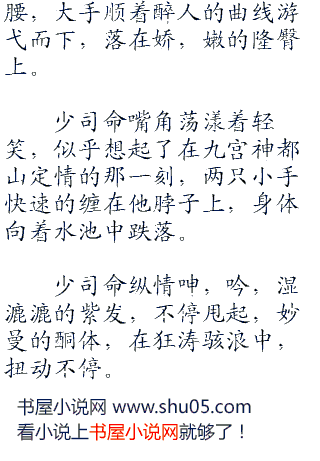 腰，大手顺着醉人的曲线游
弋而下，落在娇，嫩的隆臀
上。
少司命嘴角荡漾着轻
笑，似乎想起了在九宫神都
山定情的那一刻，两只小手
快速的缠在他脖子上，身体
向着水池中跌落。
少司命纵情呻，吟，湿
漉漉的紫发，不停甩起，妙
曼的酮体，在狂涛骇浪中，
扭动不停。
书屋小说网 www.shu05.com
看小说上书屋小说网就够了！